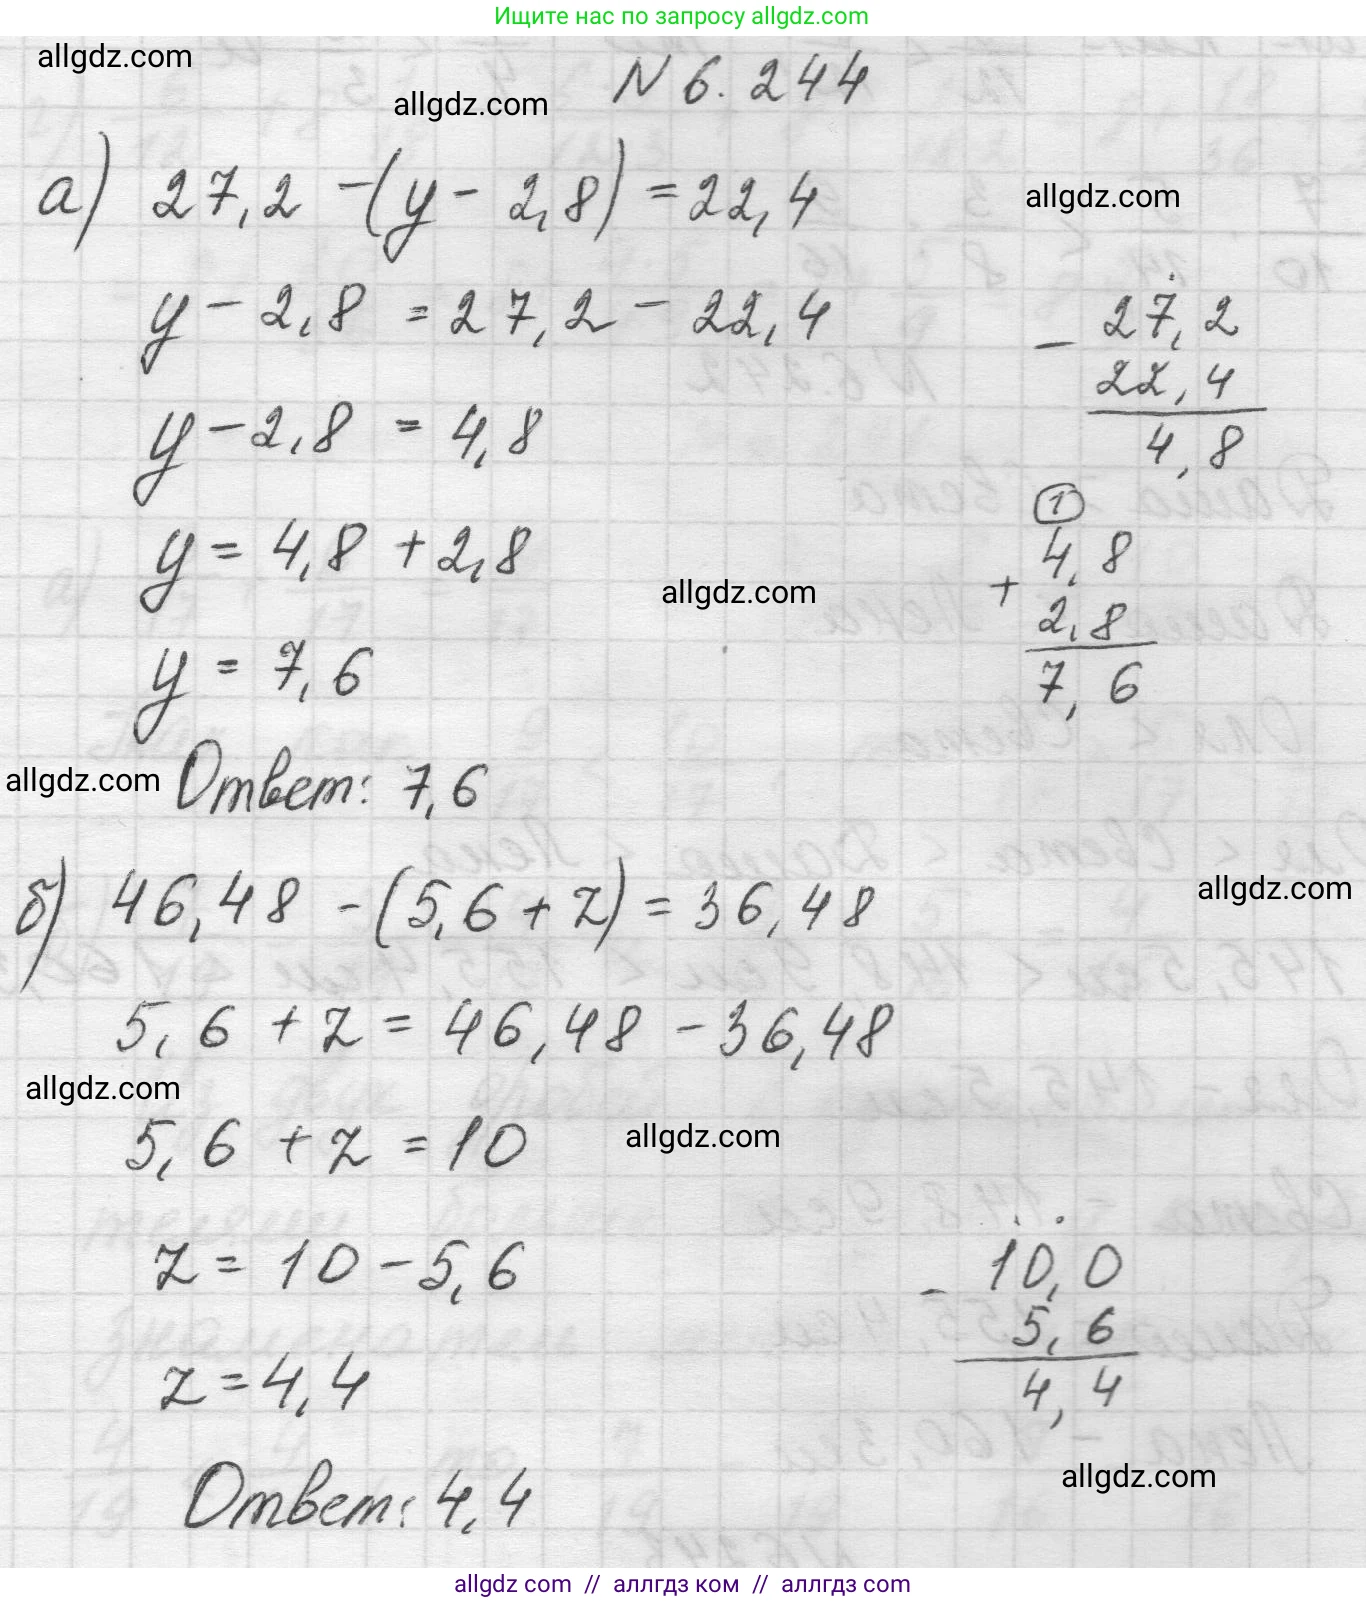 Ищите нас по запросу allgdz.com
allgdz.com
№ 6.244
allgdz.com
а) 27,2 - (y - 2,8) = 22,4
allgdz.com
y - 2,8 = 27,2 - 22,4
- 27,2
22,4
4,8
y - 2,8 = 4,8
y = 4,8 + 2,8
1
+ 4,8
2,8
7,6
allgdz.com
y = 7,6
allgdz.com
Ответ: 7,6
allgdz.com
б) 46,48 - (5,6 + z) = 36,48
5,6 + z = 46,48 - 36,48
allgdz.com
5,6 + z = 10
allgdz.com
z = 10 - 5,6
- 10,0
5,6
4,4
z = 4,4
allgdz.com
Ответ: 4,4
allgdz com // аллгдз ком // аллгдз com